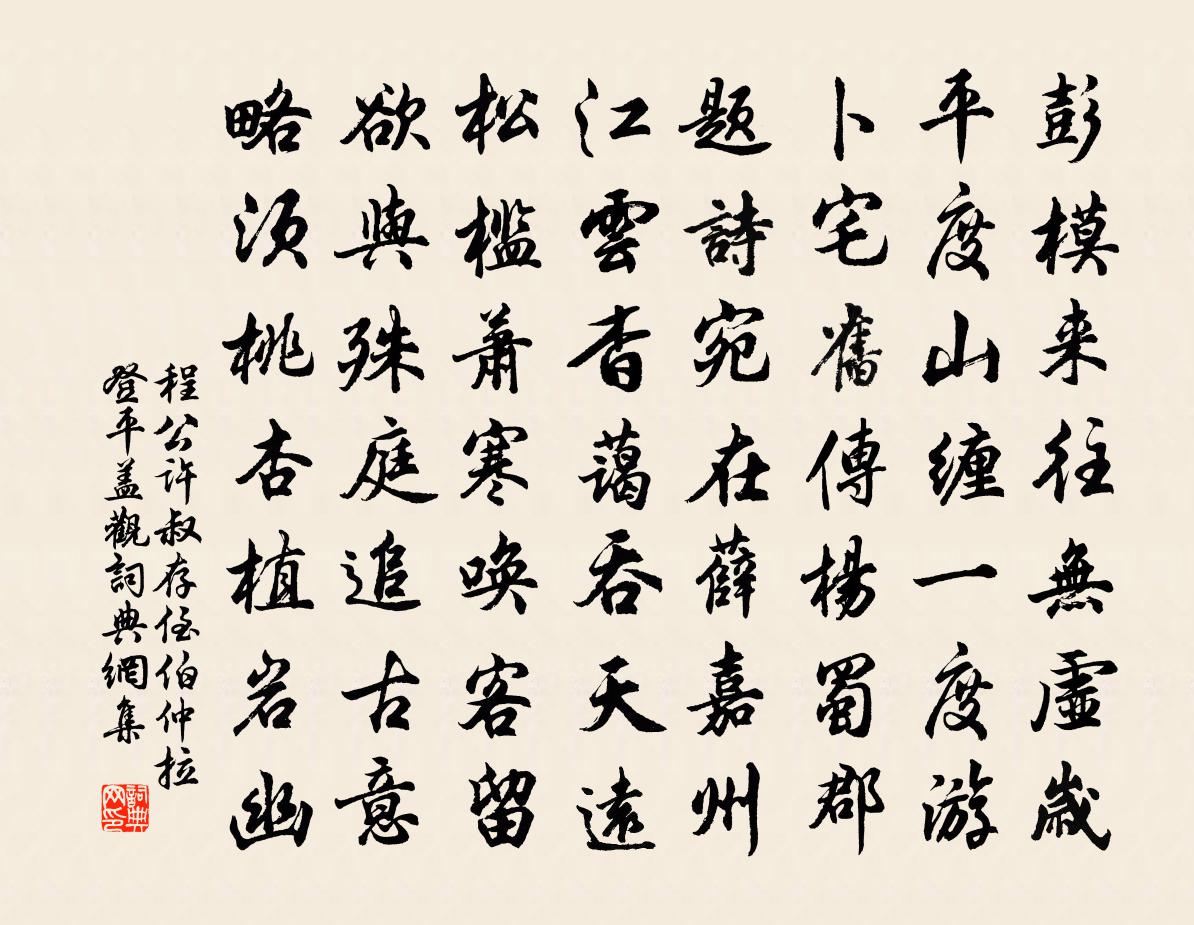 彭模来往無虛歲
平度山纏一度游
卜宅舊傳楊蜀郡
題詩宛在薛嘉州
江雲杳藹吞天遠
松檻蕭寒喚客留
欲與殊庭追古意
略須桃杏植岩幽
程公許叔存侄伯仲拉
登平盖觀詞典網集
詞典網印